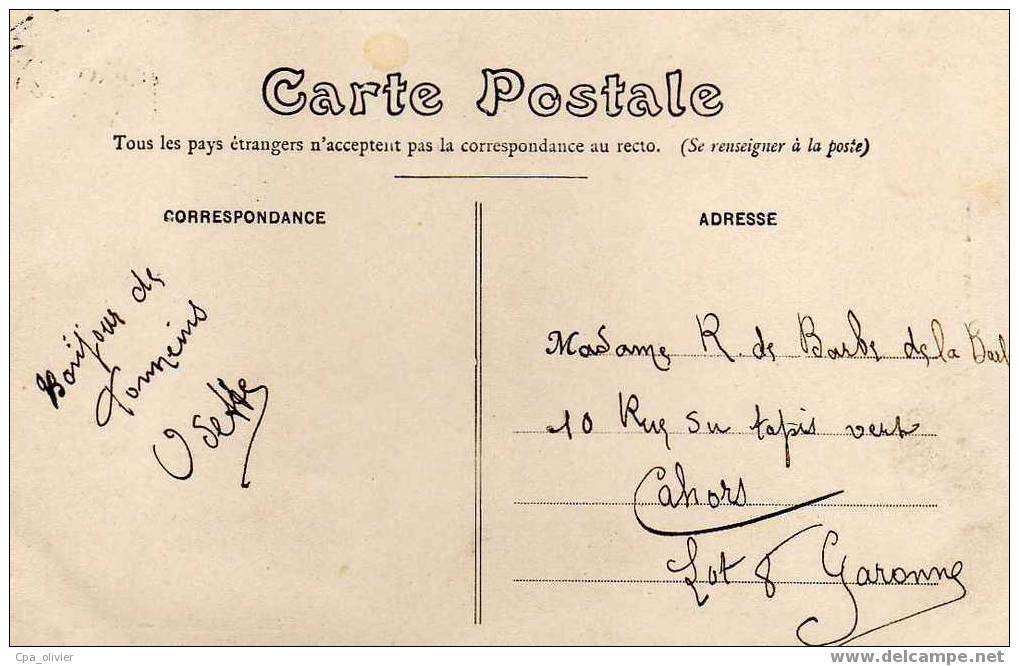 Carte Postale
Tous les pays étrangers n'acceptent pas la correspondance au recto. (Se renseigner à la poste)
CORRESPONDANCE
Bonjour de
Tonneins
Odette
ADRESSE
Madame R. de Barbe de la Barl
10 Rue du tapis vert
Cahors
Lot & Garonne
Cpa_olivier
www.delcampe.net